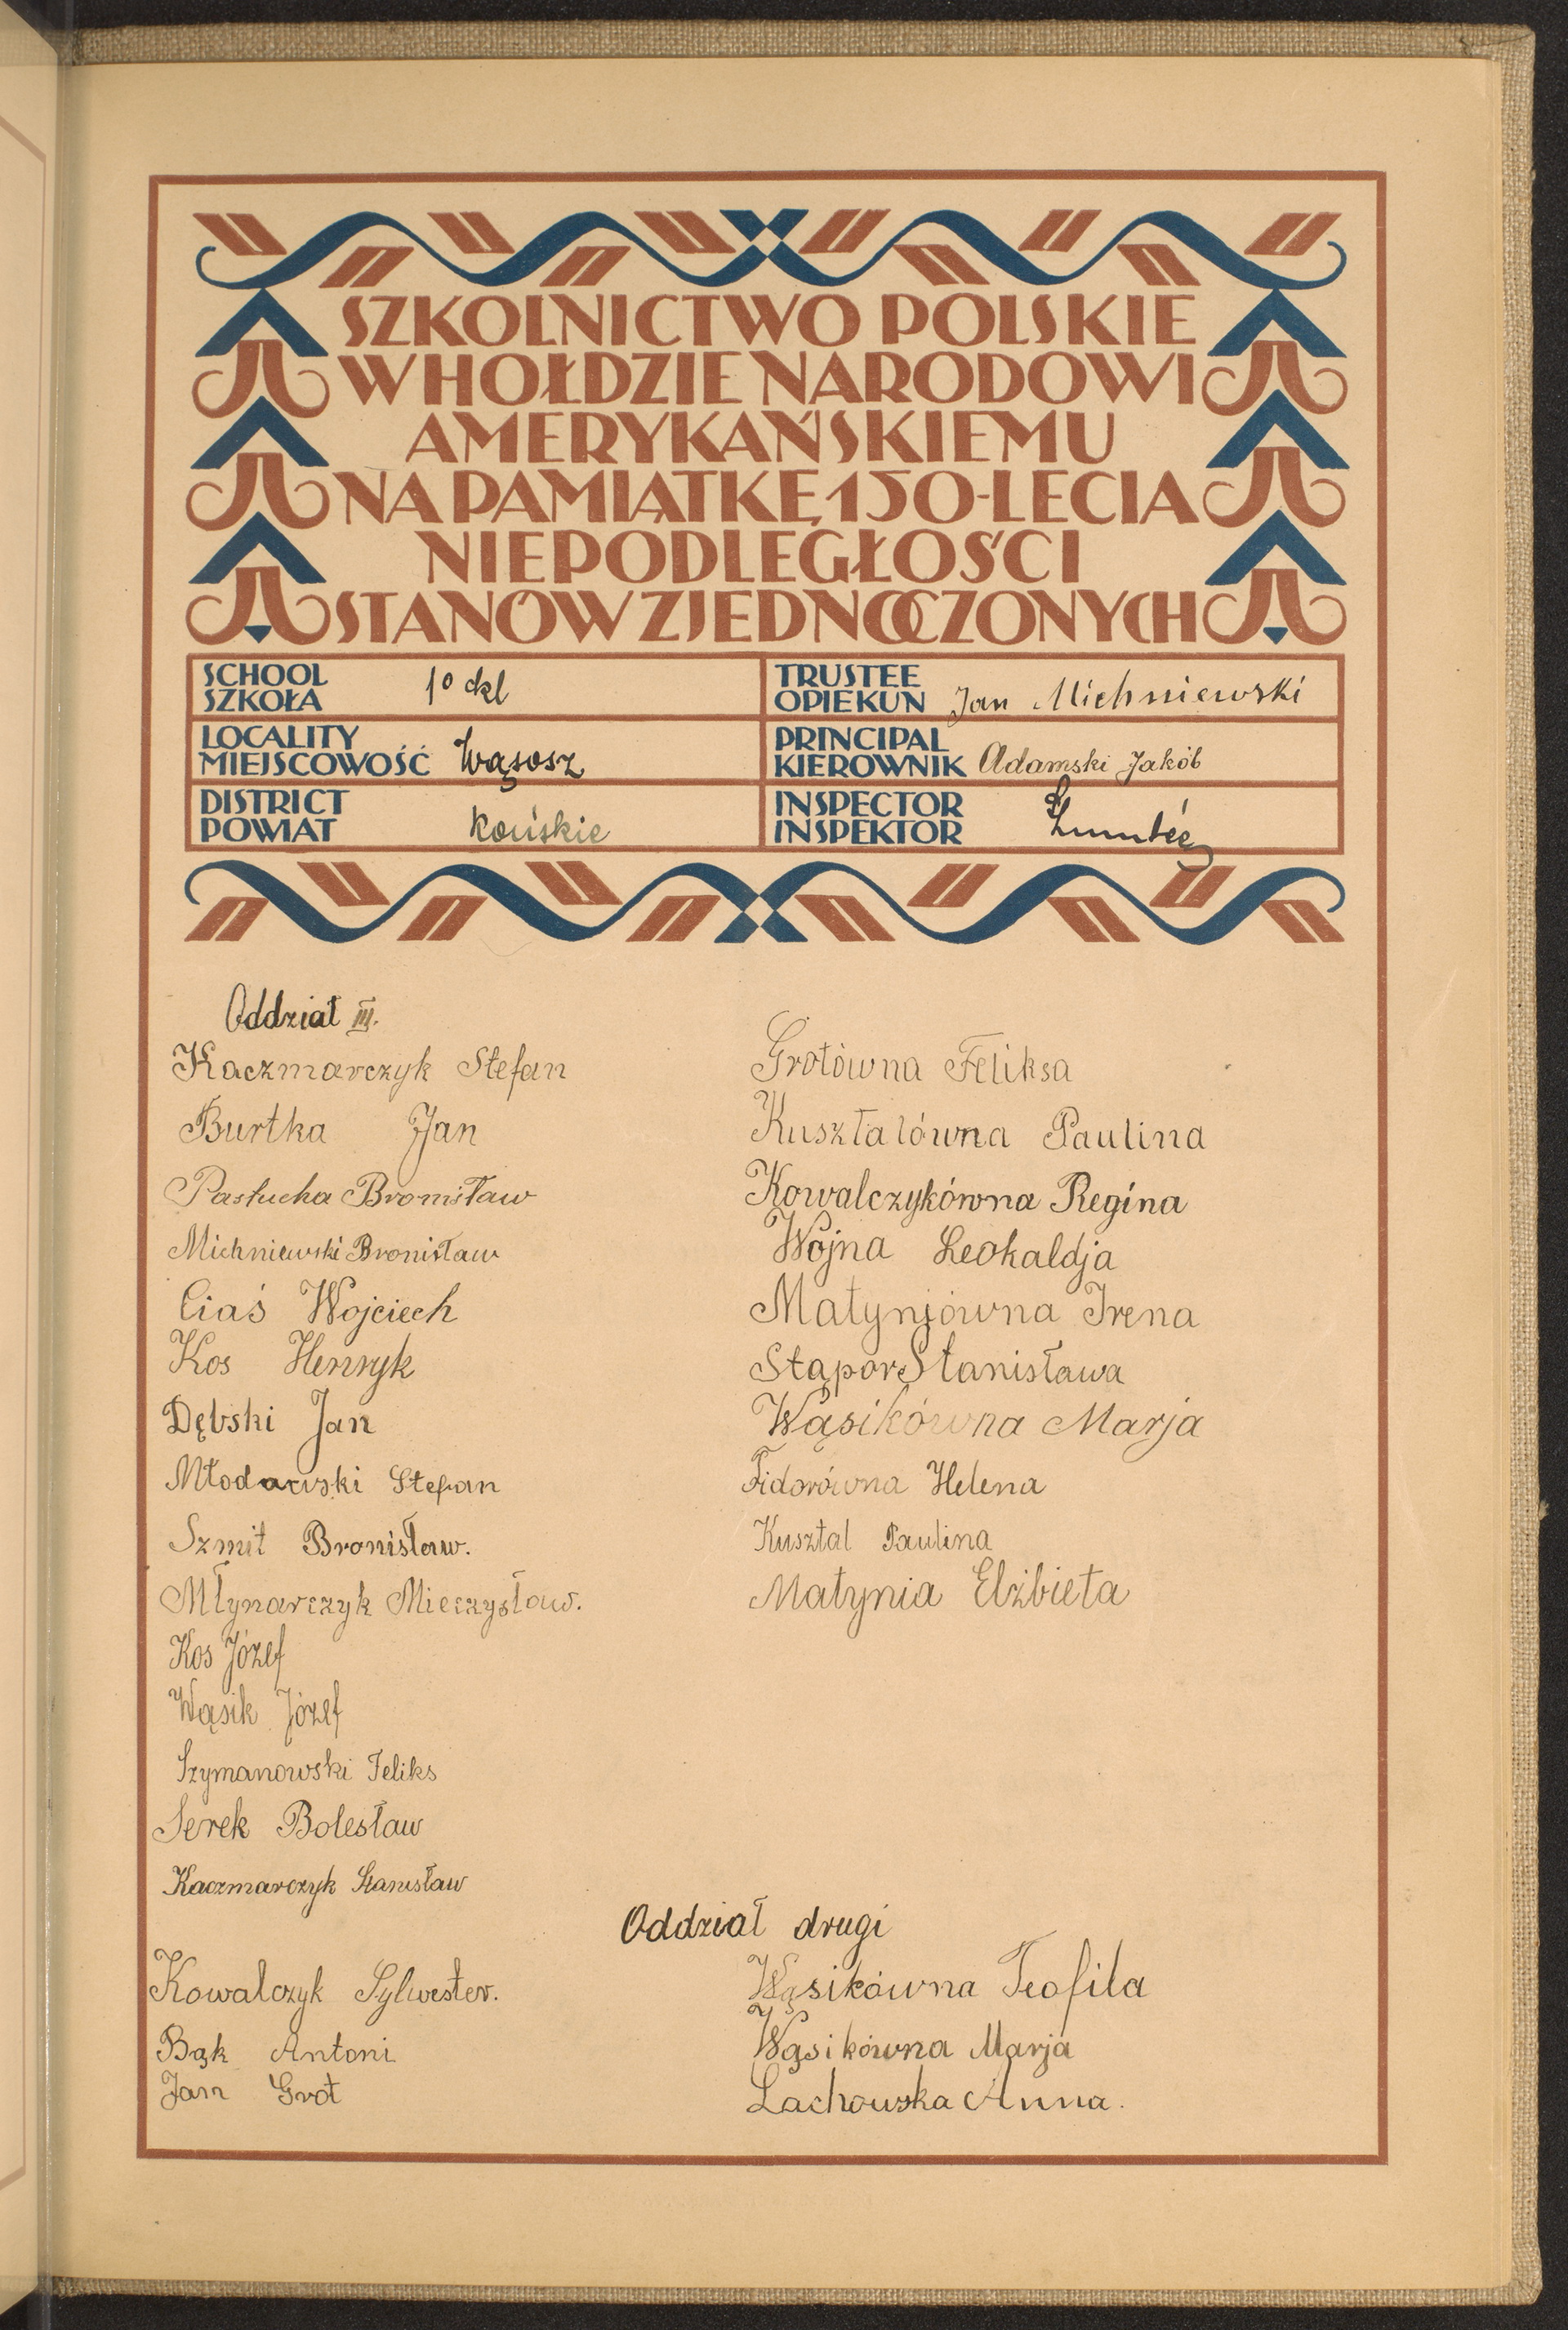 SZKOLNICTWO POLSKIE
W HOŁDZIE NARODOWI
AMERYKAŃSKIEMU
NA PAMIĄTKĘ 150-LECIA
NIEPODLEGŁOŚCI
STANÓW ZJEDNOCZONYCH
SCHOOL
SZKOŁA 1º kl
TRUSTEE
OPIEKUN Jan Michniewski
LOCALITY
MIEJSCOWOŚĆ Wąsosz
PRINCIPAL
KIEROWNIK Adamski Jakób
DISTRICT
POWIAT Końskie
INSPECTOR
INSPEKTOR
Oddział III.
Kaczmarczyk Stefan
Burtka Jan
Pastucha Bronisław
Michniewski Bronisław
Ciaś Wojciech
Kos Henryk
Dębski Jan
Młodawski Stefan
Szmit Bronisław.
Młynarczyk Mieczysław.
Kos Józef
Wąsik Józef
Szymanowski Feliks
Serek Bolesław
Kaczmarczyk Stanisław
Grotówna Feliksa
Kusztalówna Paulina
Kowalczykówna Regina
Wojna Leokaldja
Matynjówna Irena
Stąpor Stanisława
Wąsikówna Marja
Fidorówna Helena
Kusztal Paulina
Matynia Elżbieta
Oddział drugi
Kowalczyk Sylwester.
Bąk Antoni
Jan Grot
Wąsikówna Teofila
Wąsikówna Marja
Lachowska Anna.